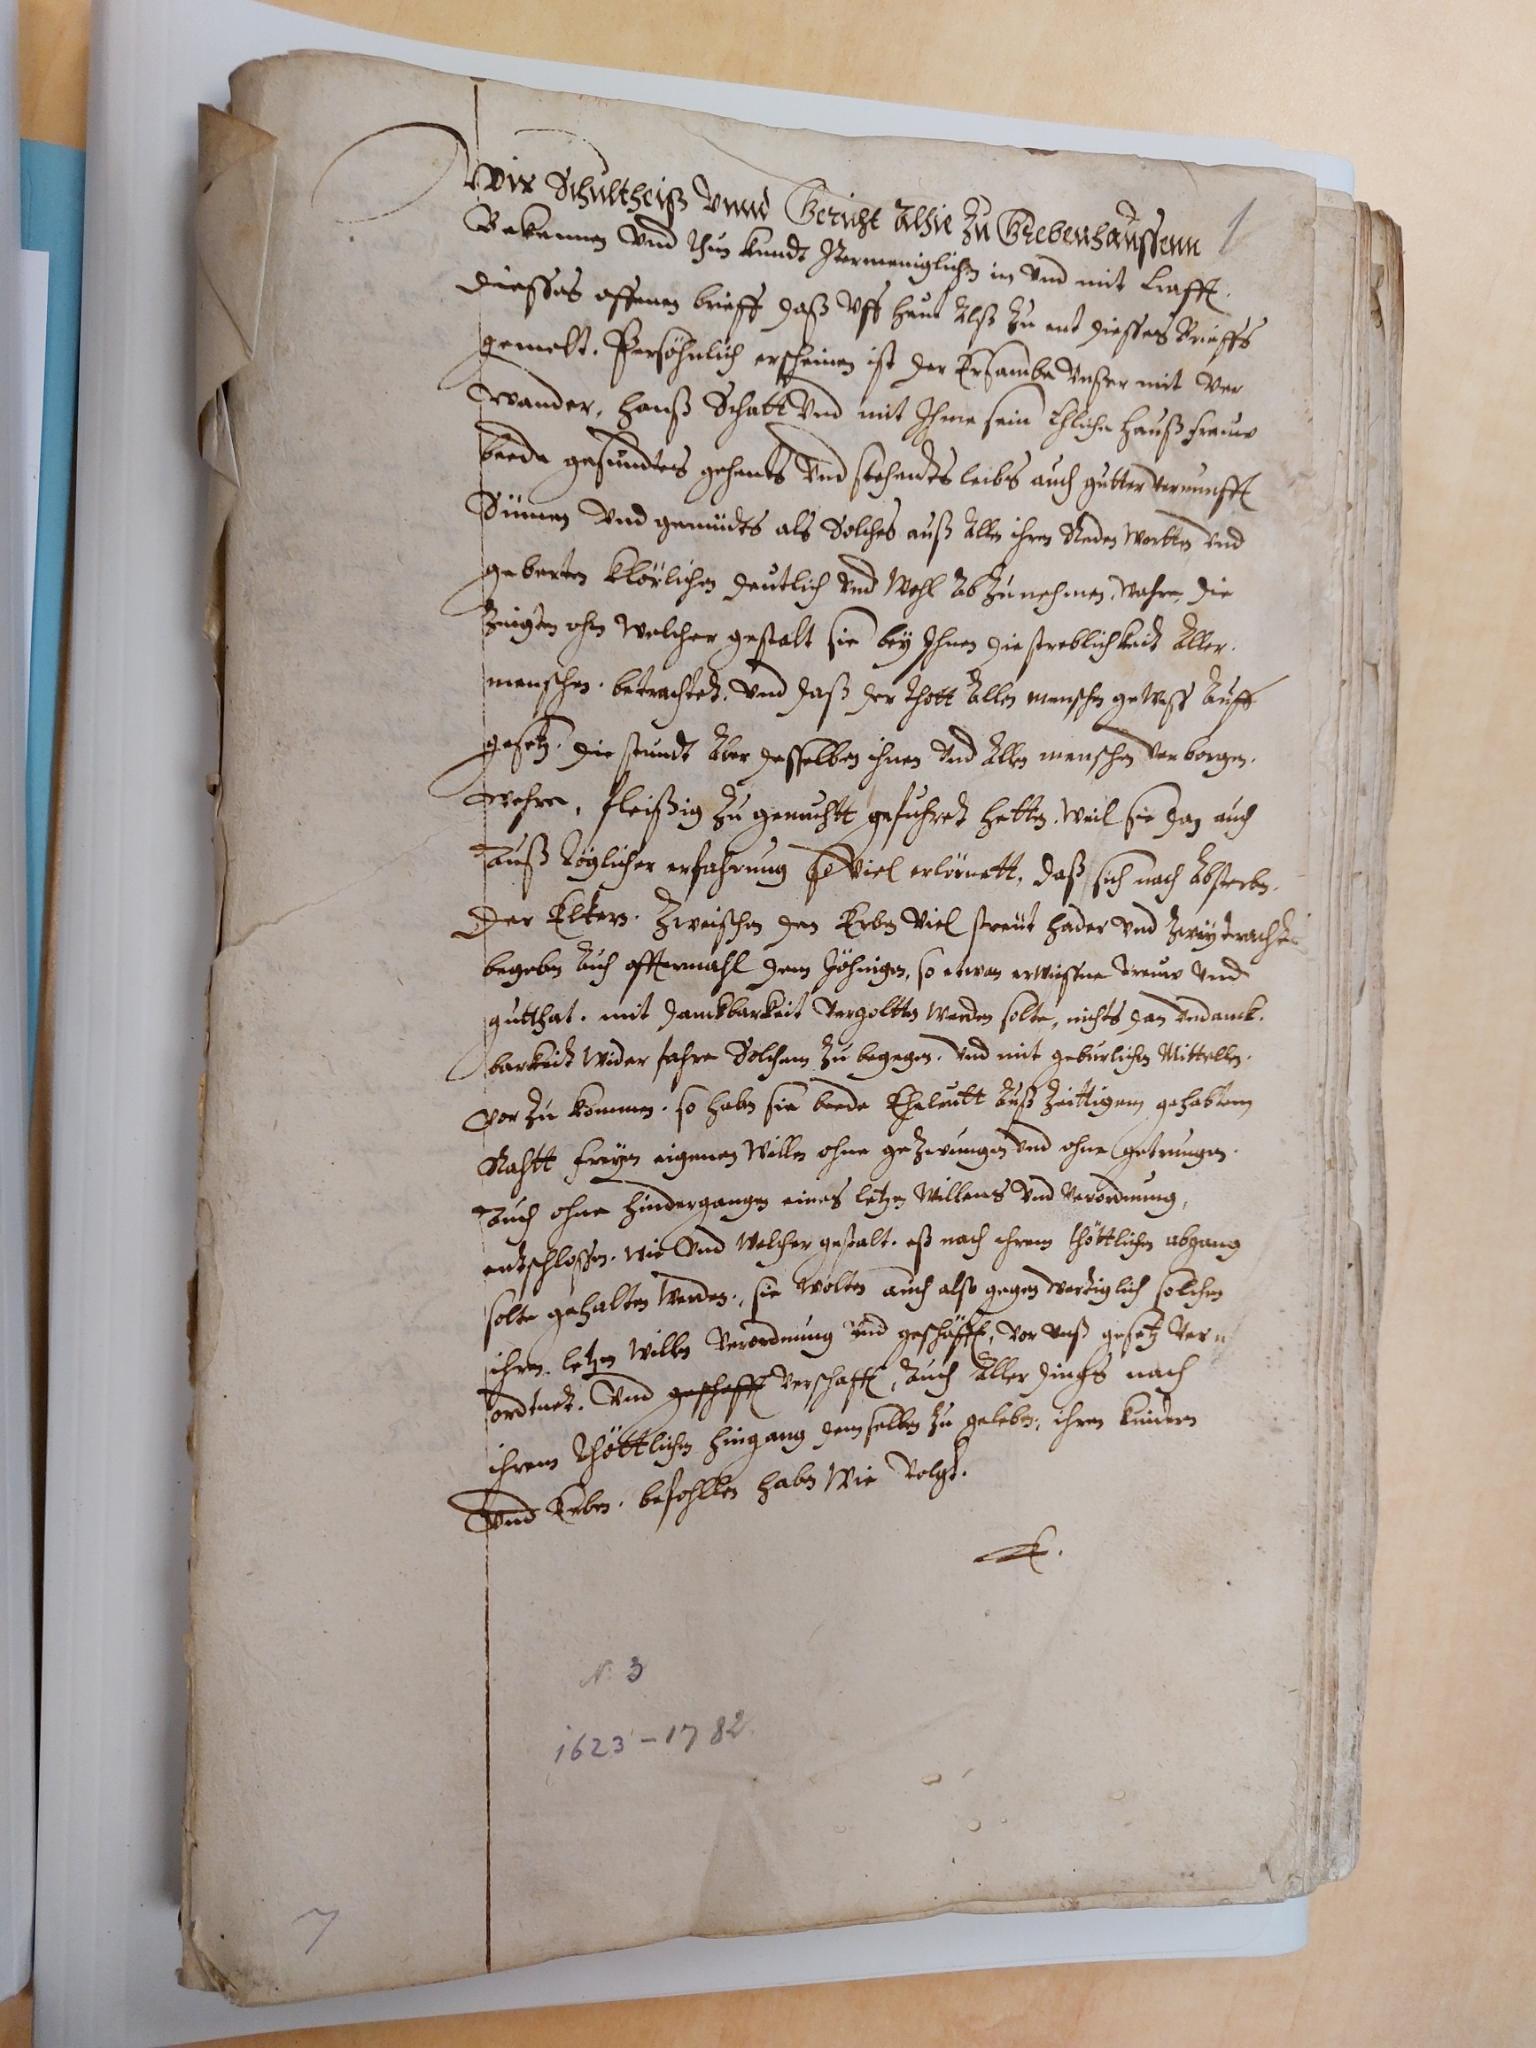 Wir Schultheiß Vnnd Gericht Alhie Zu Griebenhaussenn 1
Bekennen Vnd thun kundt Jtermeniglichen in Vnd mit krafft.
Diesses offenen brieffs daß Vff heut Alß Zu ent diesses Brieffs
gemelt. Persöhnlich erscheinen ist der Ersambe Vnser mit Ver
wander, Hanß Schatt Vnd mit Jhme sein Ehliche Hauß frauw
beede gesundtes gehents Vnd stehendtes leibs auch gutter Vernunfft
Sünnen Vnd gemüdts als Solches auß Allen ihren Reden Wortten Vnd
geberten Klörlichen deutlich Vnd Wohl Ab Zu nehmen, Wahre, die
Zeigten ohn Welcher gestalt sie bey Jhnen die sterblichkeit Aller.
menschen. betrachtet. Vnd daß der thott Allen menschen geWess Auff
gesetz. die stundt Aber desselben ihnen Vnd Allen menschen Verborgen.
Wehre, fleißig Zu gemuchtt gefuhret hetten. Weil sie dan auch
Auß töglicher erfahrung so Viel erlörnett, daß sich nach Absterben.
Der Eltern. Zwischen den Erben Viel streüt Hader Vnd Zweytracht
begeben Auch offtermahl dem Jöhnigen, so etwan erwissene treuw Vnd
gutthat. mit danckbarkeit Vergoltten Werden solte, nichts dan Vndanck.
barkeit Wider fahre Solchem Zu begegen. Vnd mit geburlichen Mittellen.
Vor Zu kommen. so haben sie beede Eheleutt Auß Zeittigem gehabtem
Rahtt freyen eigenen Willen ohne geZwungen Vnd ohne getrungen.
Auch ohne Hindergangen eines letzen Willens Vnd Verordnung,
entschlossen. Wie Vnd Welcher gestalt. eß nach ihrem thöttlichen abgang
solte gehalten Werden., sie Wolten auch also gegen Wertiglich solchen
ihren letzen Willen Verordnung Vnd geschäfft, Vor Vnß gesetz Ver
ordtnet. Vnd geschafft Verschafft, Auch Aller dings nach
ihrem thöttlichen Hingang demselben Zu geleben, ihren Kindern
Vnd Erben. befohllen haben Wie Volgt.
N. 3
1623-1782
7